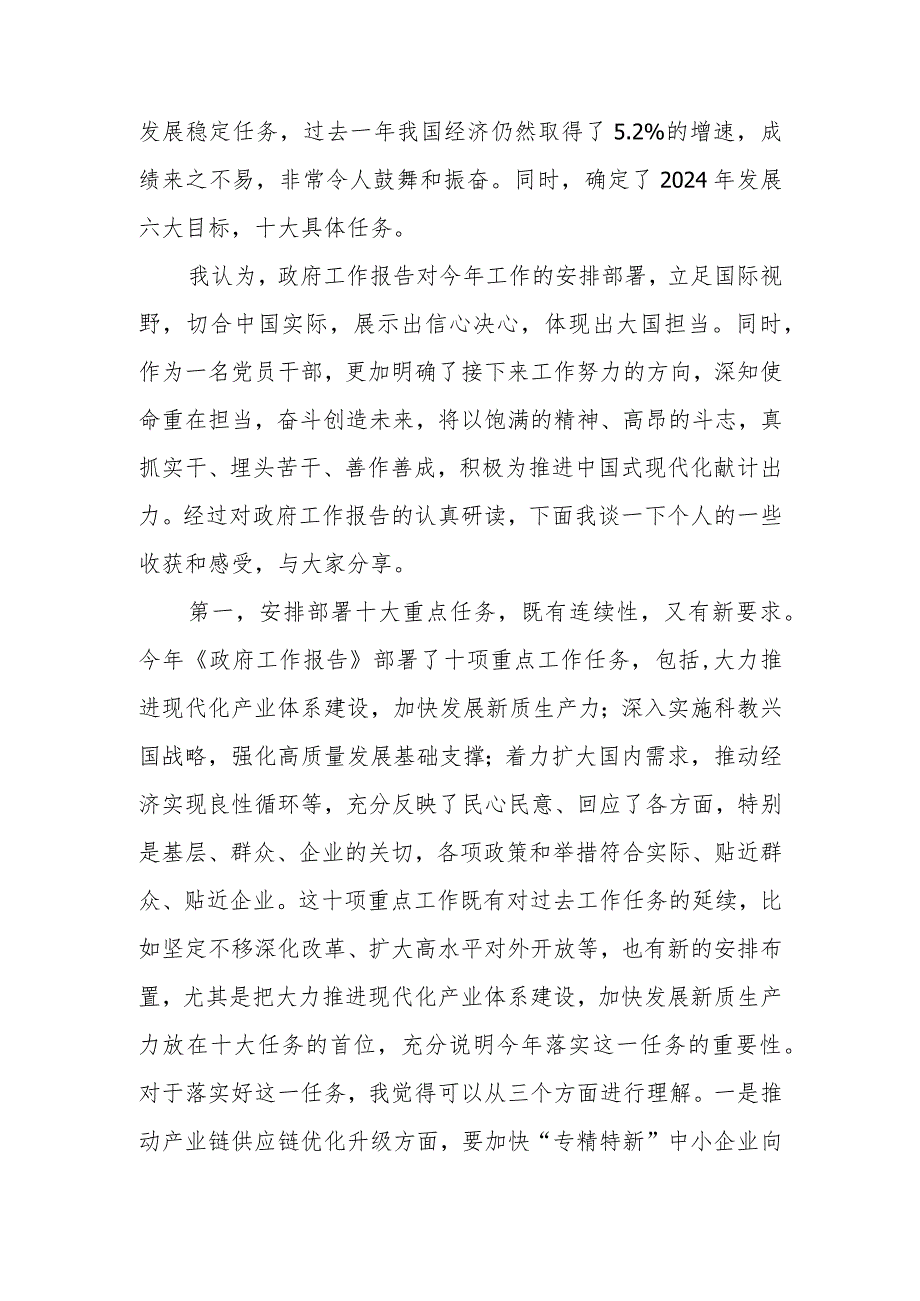 发展稳定任务，过去一年我国经济仍然取得了 5.2%的增速，成
绩来之不易，非常令人鼓舞和振奋。同时，确定了 2024 年发展
六大目标，十大具体任务。
我认为，政府工作报告对今年工作的安排部署，立足国际视
野，切合中国实际，展示出信心决心，体现出大国担当。同时，
作为一名党员干部，更加明确了接下来工作努力的方向，深知使
命重在担当，奋斗创造未来，将以饱满的精神、高昂的斗志，真
抓实干、埋头苦干、善作善成，积极为推进中国式现代化献计出
力。经过对政府工作报告的认真研读，下面我谈一下个人的一些
收获和感受，与大家分享。
第一，安排部署十大重点任务，既有连续性，又有新要求。
今年《政府工作报告》部署了十项重点工作任务，包括,大力推
进现代化产业体系建设，加快发展新质生产力；深入实施科教兴
国战略，强化高质量发展基础支撑；着力扩大国内需求，推动经
济实现良性循环等，充分反映了民心民意、回应了各方面，特别
是基层、群众、企业的关切，各项政策和举措符合实际、贴近群
众、贴近企业。这十项重点工作既有对过去工作任务的延续，比
如坚定不移深化改革、扩大高水平对外开放等，也有新的安排布
置，尤其是把大力推进现代化产业体系建设，加快发展新质生产
力放在十大任务的首位，充分说明今年落实这一任务的重要性。
对于落实好这一任务，我觉得可以从三个方面进行理解。一是推
动产业链供应链优化升级方面，要加快“专精特新”中小企业向